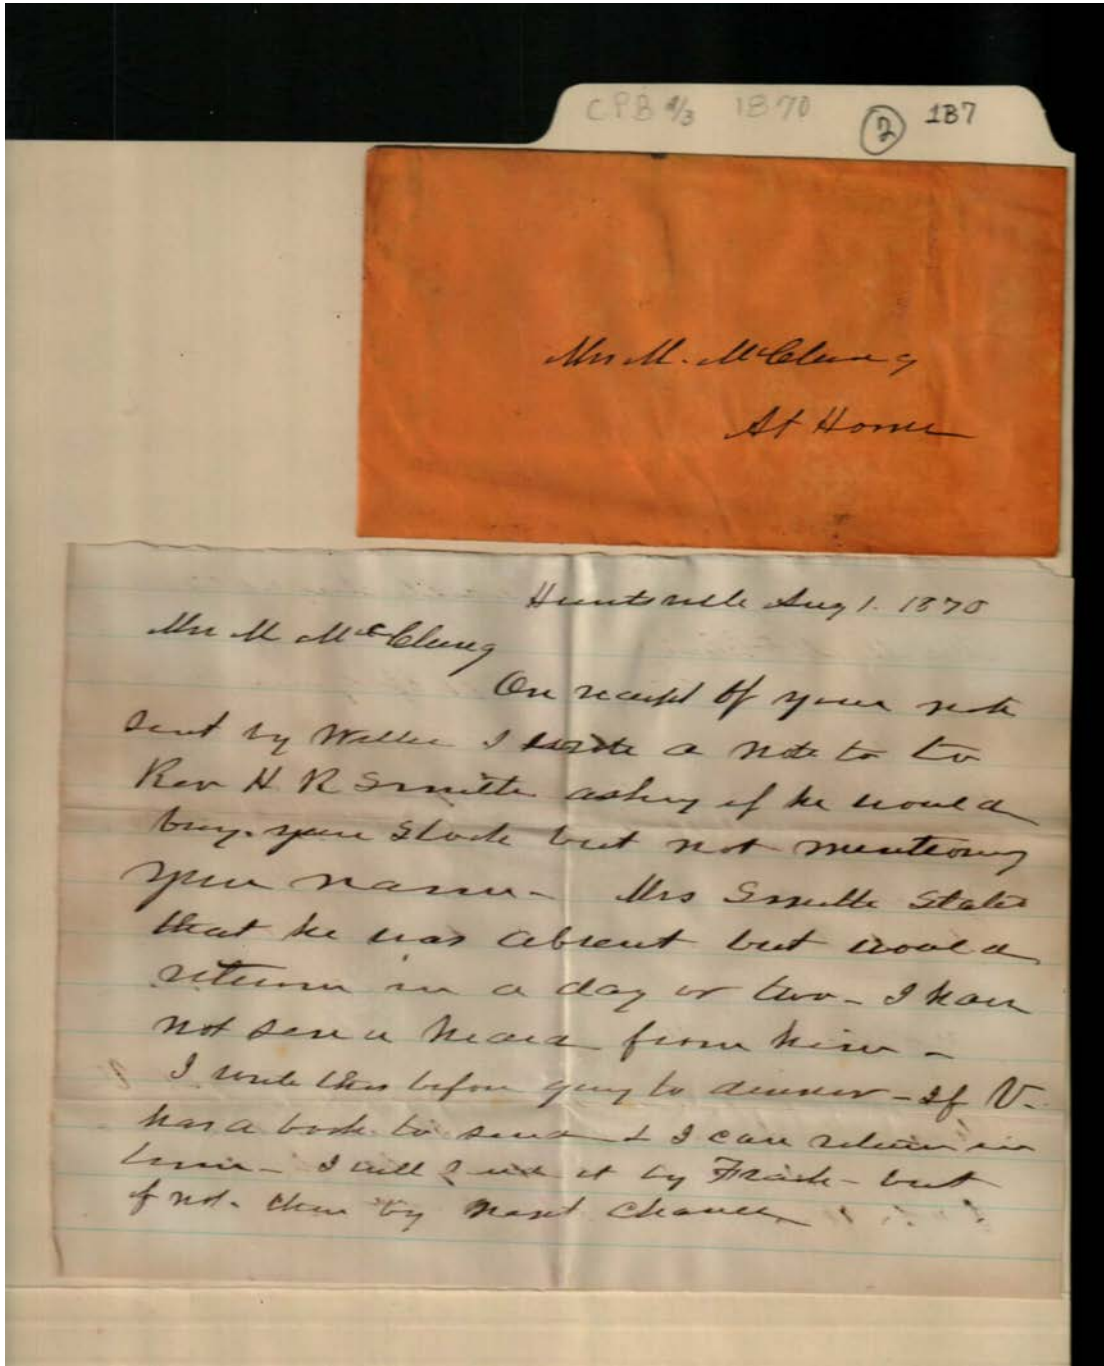 CPB 2/3 1870 2 1B7
Mrs M. McClung
At Home
Huntsville Aug 1. 1870
Mrs M McClung
On receipt of your note
sent by Willie I wrote a note to to
Rev H R Smith asking if he would
buy your Stock but not mentioning
your name - Mrs Smith States
that he was absent but would
return in a day or two - I have
not seen or heard from him -
I write this before going to dinner - If V.
has a book to send & I can return in
time - I will send it by Frank - but
if not - then by next Chance